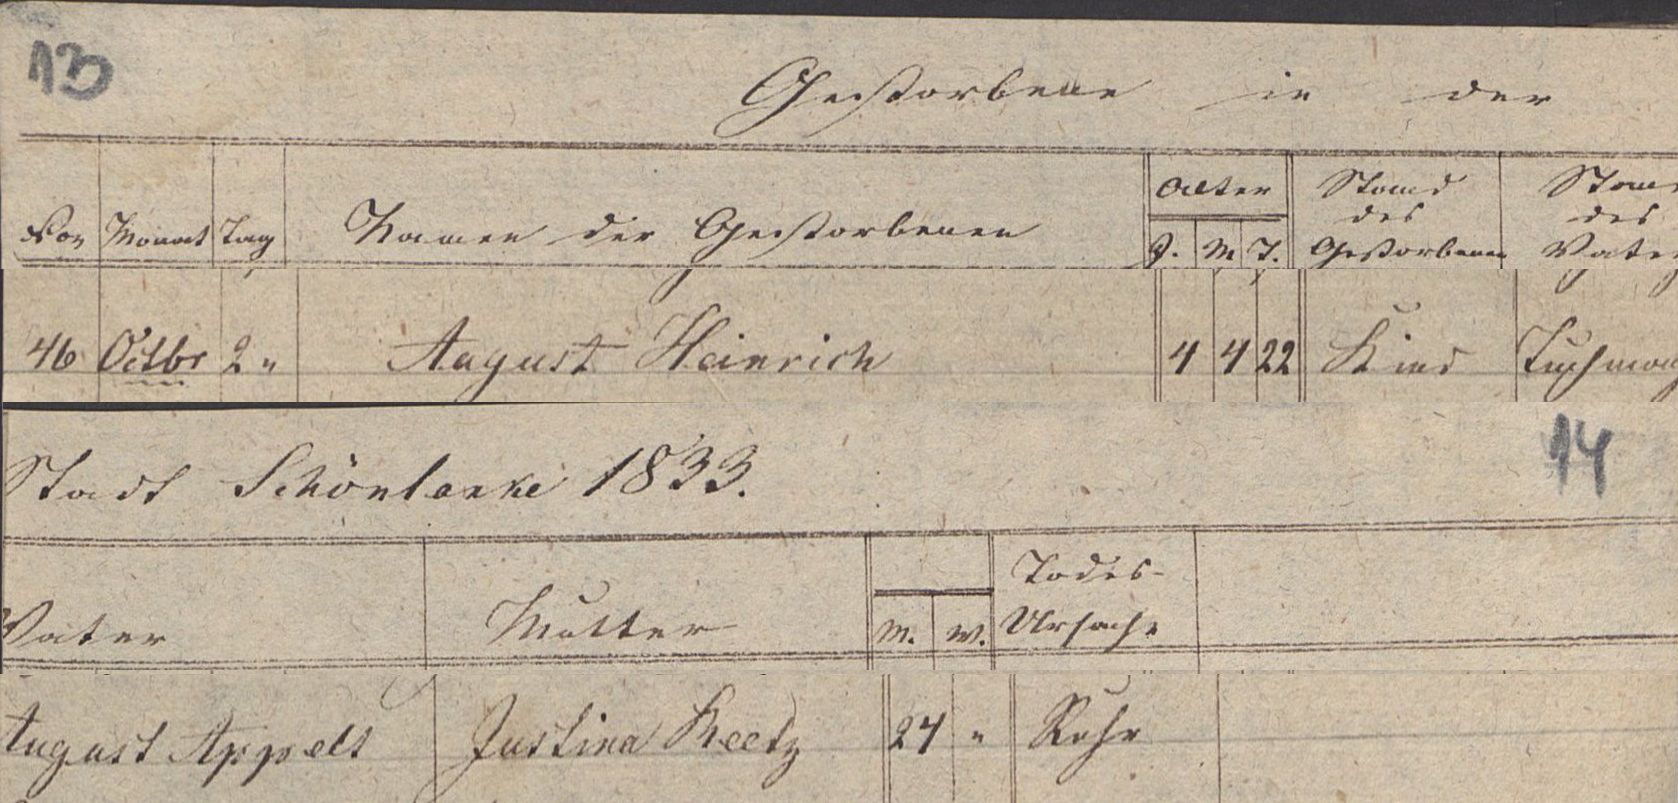 13
Gestorbene in der
Alter Stand Stand
des des
Monat Tag Namen der Gestorbenen J. M T. Gestorbenen Vater
46 Octbr 2 " August Heinrich 4 4 22 Kind Tuchmach
14
Stadt Schönlanke 1833.
Todes-
Vater Mutter M. W. Ursache
August Appelt Justina Reetz 24 " Ruhr